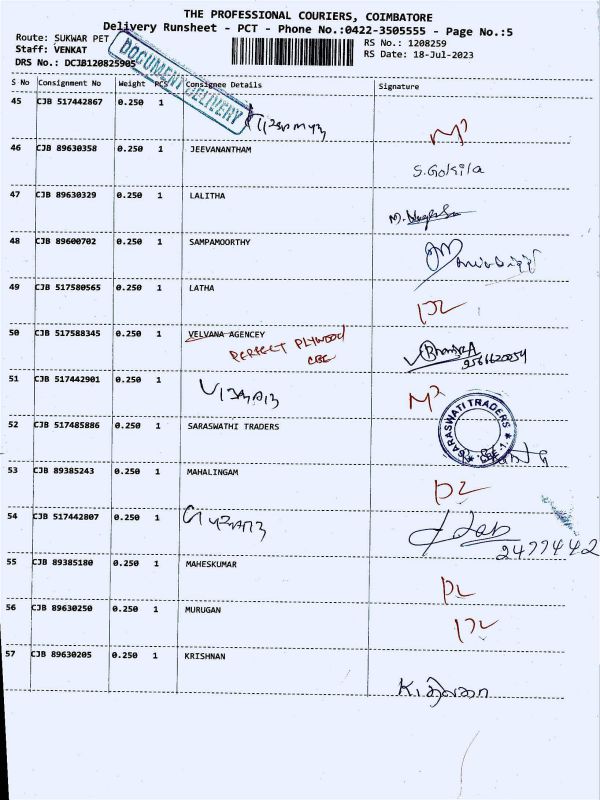 THE PROFESSIONAL COURIERS, COIMBATORE
Delivery Runsheet - PCT - Phone No.:0422-3505555 - Page No.:5
Route: SUKWAR PET
RS No.: 1208259
Staff: VENKAT
RS Date: 18-Jul-2023
DRS No.: DCJB120825905
DOCUMENT DELIVERY
S No Consignment No Weight Pcs Consignee Details Signature
45 CJB 517442867 0.250 1
46 CJB 89630358 0.250 1 JEEVANANTHAM S.Gokila
47 CJB 89630329 0.250 1 LALITHA
48 CJB 89600702 0.250 1 SAMPAMOORTHY
49 CJB 517580565 0.250 1 LATHA
50 CJB 517588345 0.250 1 VELVANA AGENCEY
PERFECT PLYWOOD
CBE
51 CJB 517442901 0.250 1
52 CJB 517485886 0.250 1 SARASWATHI TRADERS SARASWATI TRADERS
53 CJB 89385243 0.250 1 MAHALINGAM
54 CJB 517442807 0.250 1
2477442
55 CJB 89385180 0.250 1 MAHESKUMAR
56 CJB 89630250 0.250 1 MURUGAN
57 CJB 89630205 0.250 1 KRISHNAN